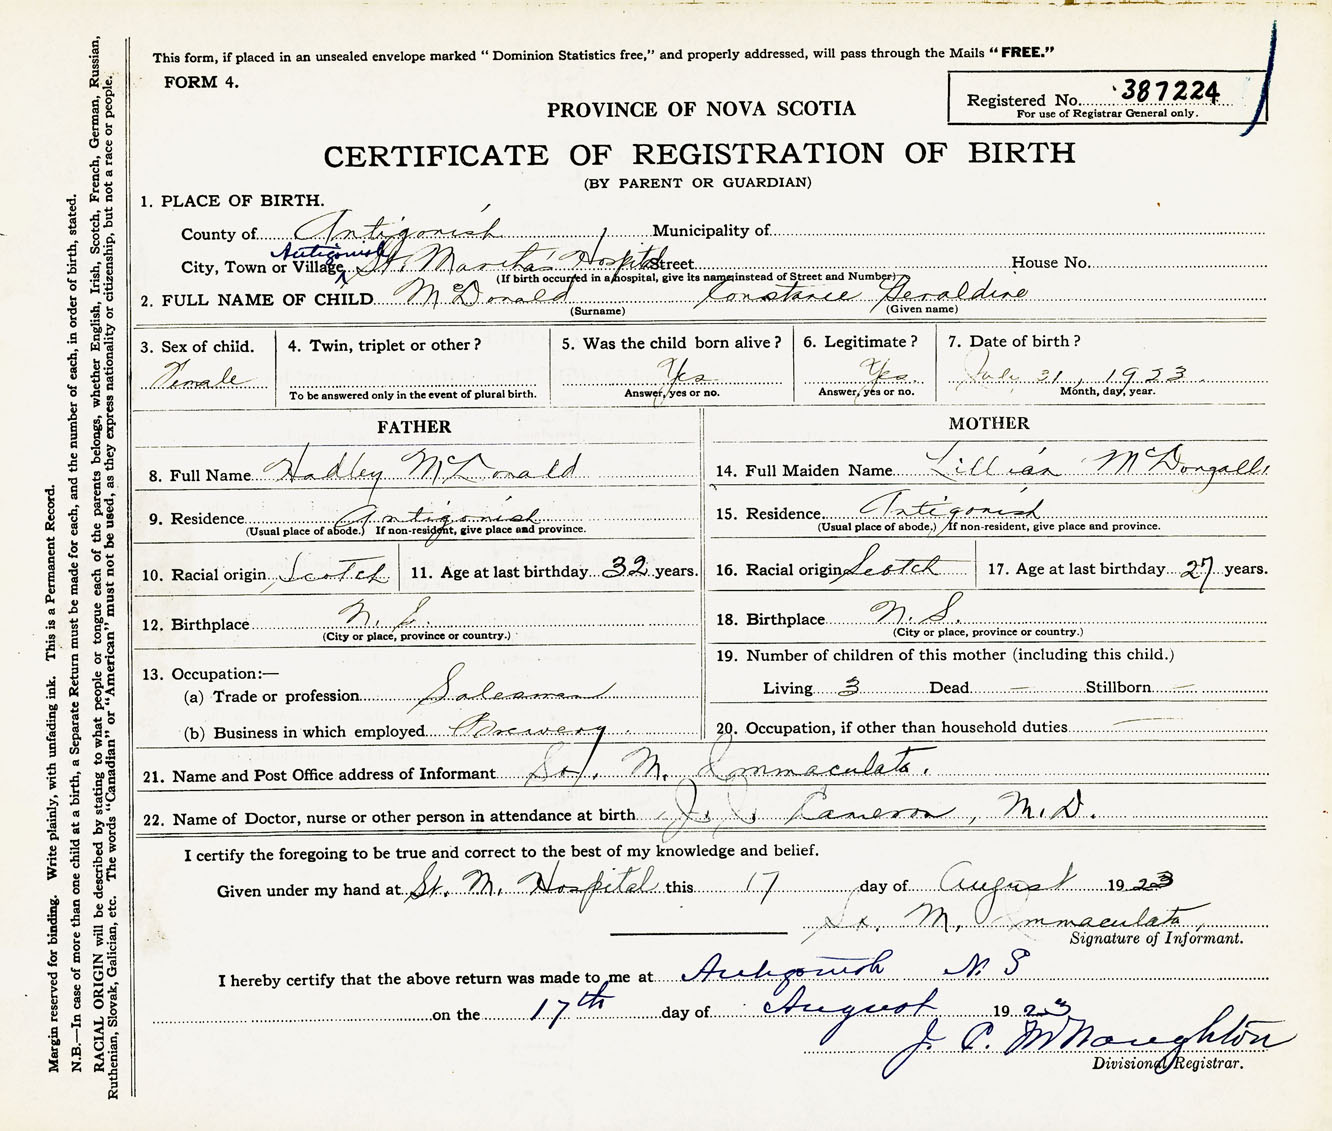 This form, if placed in an unsealed envelope marked “ Dominion Statistics free,” and properly addressed, will pass through the Mails “ FREE.”
FORM 4.
Registered No. 387224
For use of Registrar General only.
PROVINCE OF NOVA SCOTIA
CERTIFICATE OF REGISTRATION OF BIRTH
(BY PARENT OR GUARDIAN)
1. PLACE OF BIRTH.
County of Antigonish Municipality of
Antigonish
City, Town or Village St. Martha's Hospital Street House No.
(If birth occurred in a hospital, give its name instead of Street and Number)
2. FULL NAME OF CHILD McDonald Constance Geraldine
(Surname) (Given name)
3. Sex of child. 4. Twin, triplet or other ? 5. Was the child born alive ? 6. Legitimate ? 7. Date of birth ?
Female Yes Yes. July 31, 1923.
To be answered only in the event of plural birth. Answer, yes or no. Answer, yes or no. Month, day, year.
FATHER MOTHER
8. Full Name Hadley McDonald 14. Full Maiden Name Lillian McDougall
9. Residence Antigonish 15. Residence Antigonish
(Usual place of abode.) If non-resident, give place and province. (Usual place of abode.) If non-resident, give place and province.
10. Racial origin Scotch 11. Age at last birthday 32 years. 16. Racial origin Scotch 17. Age at last birthday 27 years.
12. Birthplace N. S. 18. Birthplace N. S.
(City or place, province or country.) (City or place, province or country.)
13. Occupation:— 19. Number of children of this mother (including this child.)
(a) Trade or profession Salesman Living 3 Dead — Stillborn —
(b) Business in which employed Brewery. 20. Occupation, if other than household duties —
21. Name and Post Office address of Informant Sr. M. Immaculata.
22. Name of Doctor, nurse or other person in attendance at birth J. J. Cameron, M.D.
I certify the foregoing to be true and correct to the best of my knowledge and belief.
Given under my hand at St. M. Hospital this 17 day of August 1923
Sr. M. Immaculata,
Signature of Informant.
I hereby certify that the above return was made to me at Antigonish N. S
on the 17th day of August 1923
J. C. McNaughton
Divisional Registrar.
Margin reserved for binding. Write plainly, with unfading ink. This is a Permanent Record.
N.B.—In case of more than one child at a birth, a Separate Return must be made for each, and the number of each, in order of birth, stated.
RACIAL ORIGIN will be described by stating to what people or tongue each of the parents belongs, whether English, Irish, Scotch, French, German, Russian,
Ruthenian, Slovak, Galician, etc. The words “Canadian” or “American” must not be used, as they express nationality or citizenship, but not a race or people.